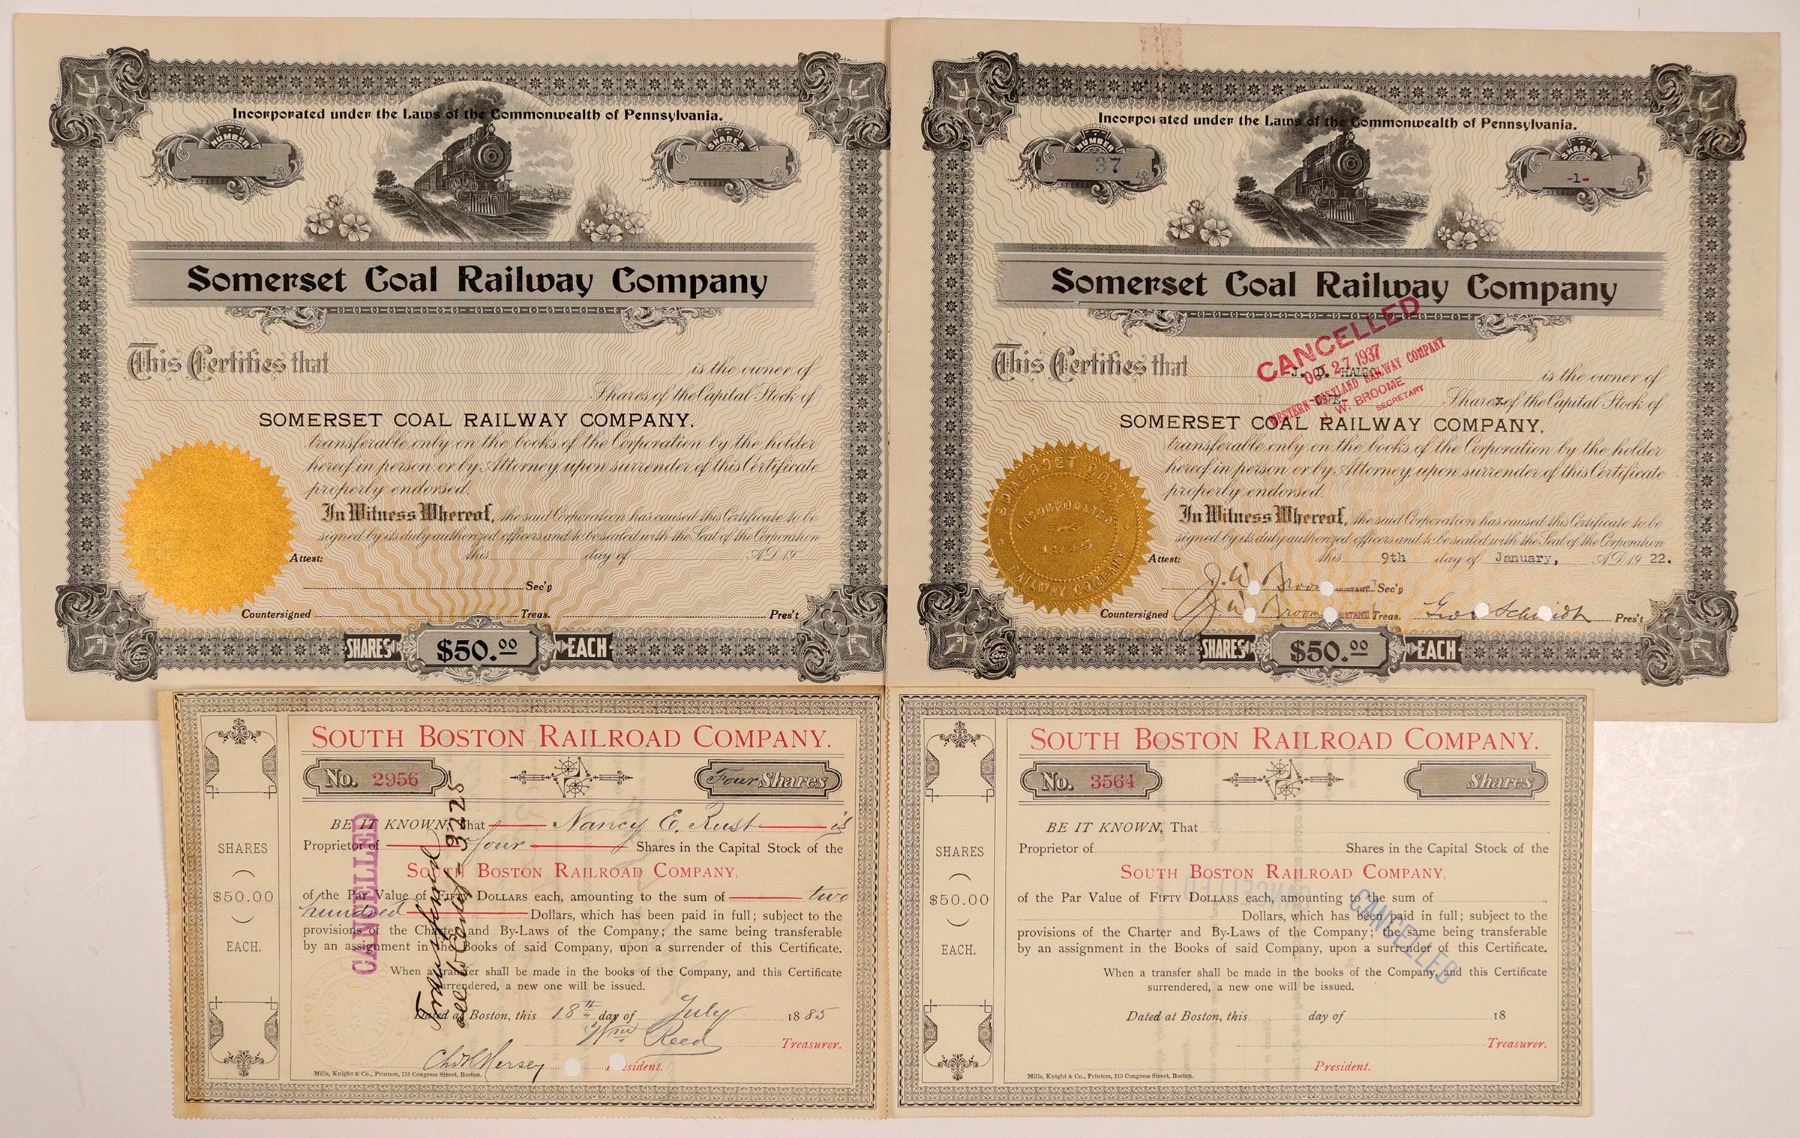 Incorporated under the Laws of the Commonwealth of Pennsylvania.
NUMBER
SHARES
Somerset Coal Railway Company
This Certifies that
is the owner of
Shares of the Capital Stock of
SOMERSET COAL RAILWAY COMPANY.
transferable only on the books of the Corporation by the holder
hereof in person or by Attorney, upon surrender of this Certificate
properly endorsed.
In Witness Whereof, the said Corporation has caused this Certificate to be
signed by its duly authorized officers and to be sealed with the Seal of the Corporation
this day of A.D. 19
Attest:
Sec'y
Countersigned Treas. Pres't
SHARES $50.00 EACH
Incorporated under the Laws of the Commonwealth of Pennsylvania.
NUMBER
37
SHARES
-1-
Somerset Coal Railway Company
CANCELLED
OCT 27 1937
WESTERN MARYLAND RAILWAY COMPANY
J. W. BROOME
SECRETARY
This Certifies that J. D. is the owner of
-ONE- Share of the Capital Stock of
SOMERSET COAL RAILWAY COMPANY.
transferable only on the books of the Corporation by the holder
hereof in person or by Attorney, upon surrender of this Certificate
properly endorsed.
In Witness Whereof, the said Corporation has caused this Certificate to be
signed by its duly authorized officers and to be sealed with the Seal of the Corporation
this 9th day of January, A.D. 1922.
SOMERSET COAL RAILWAY COMPANY
INCORPORATED
Attest:
J. W. Broome ASSISTANT Sec'y
Countersigned J. W. Broome ASSISTANT Treas. Geo Schmidt Pres't
SHARES $50.00 EACH
SHARES
$50.00
EACH.
SOUTH BOSTON RAILROAD COMPANY.
No. 2956
Four Shares
BE IT KNOWN, That Nancy E. Rust is
Proprietor of four Shares in the Capital Stock of the
SOUTH BOSTON RAILROAD COMPANY,
of the Par Value of FIFTY DOLLARS each, amounting to the sum of two
hundred Dollars, which has been paid in full; subject to the
provisions of the Charter and By-Laws of the Company; the same being transferable
by an assignment in the Books of said Company, upon a surrender of this Certificate.
When a transfer shall be made in the books of the Company, and this Certificate
surrendered, a new one will be issued.
Dated at Boston, this 18th day of July 1885
Wm Reed Treasurer.
Chas H Hersey President.
Mills, Knight & Co., Printers, 115 Congress Street, Boston.
CANCELLED
Transferred
3225
SHARES
$50.00
EACH.
SOUTH BOSTON RAILROAD COMPANY.
No. 3564
Shares
BE IT KNOWN, That
Proprietor of Shares in the Capital Stock of the
SOUTH BOSTON RAILROAD COMPANY,
of the Par Value of FIFTY DOLLARS each, amounting to the sum of
Dollars, which has been paid in full; subject to the
provisions of the Charter and By-Laws of the Company; the same being transferable
by an assignment in the Books of said Company, upon a surrender of this Certificate.
When a transfer shall be made in the books of the Company, and this Certificate
surrendered, a new one will be issued.
Dated at Boston, this day of 18
Treasurer.
President.
Mills, Knight & Co., Printers, 115 Congress Street, Boston.
CANCELLED
CANCELLED